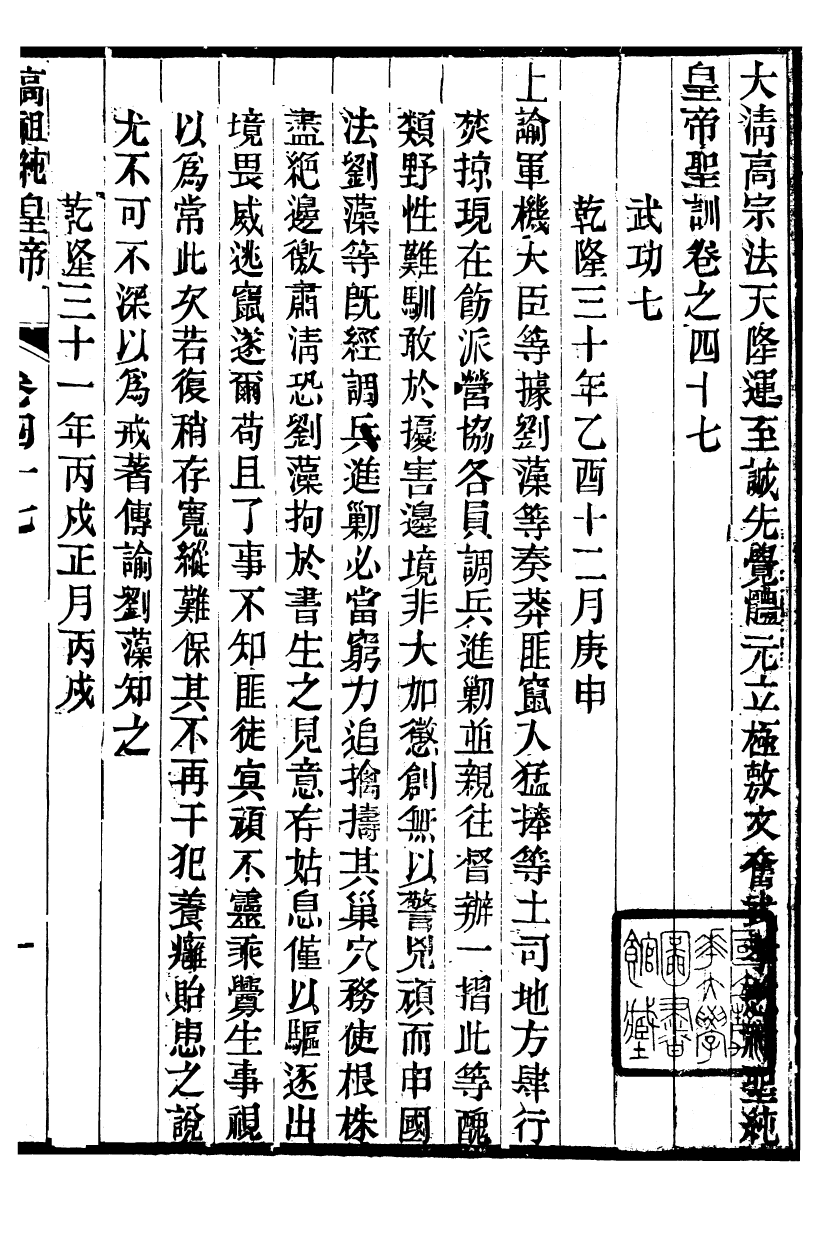 大清高宗法天隆運至誠先覺體元立極敷文奮武孝慈神聖純
皇帝聖訓卷之四十七
武功七
乾隆三十年乙酉十二月庚申
上諭軍機大臣等據劉藻等奏莽匪竄入猛捧等土司地方肆行
焚掠現在飭派營協各員調兵進勦並親往督辦一摺此等醜
類野性難馴敢於擾害邊境非大加懲創無以警兇頑而申國
法劉藻等旣經調兵進勦必當窮力追擒擣其巢穴務使根株
盡絶邊徼肅淸恐劉藻拘於書生之見意存姑息僅以驅逐出
境畏威逃竄遂爾苟且了事不知匪徒冥頑不靈乘釁生事視
以爲常此次若復稍存寬縱難保其不再干犯養癰貽患之說
尤不可不深以爲戒著傳諭劉藻知之
乾隆三十一年丙戌正月丙戌
高祖純皇帝
卷四十七
一
國立清
華大學
圖書
館藏